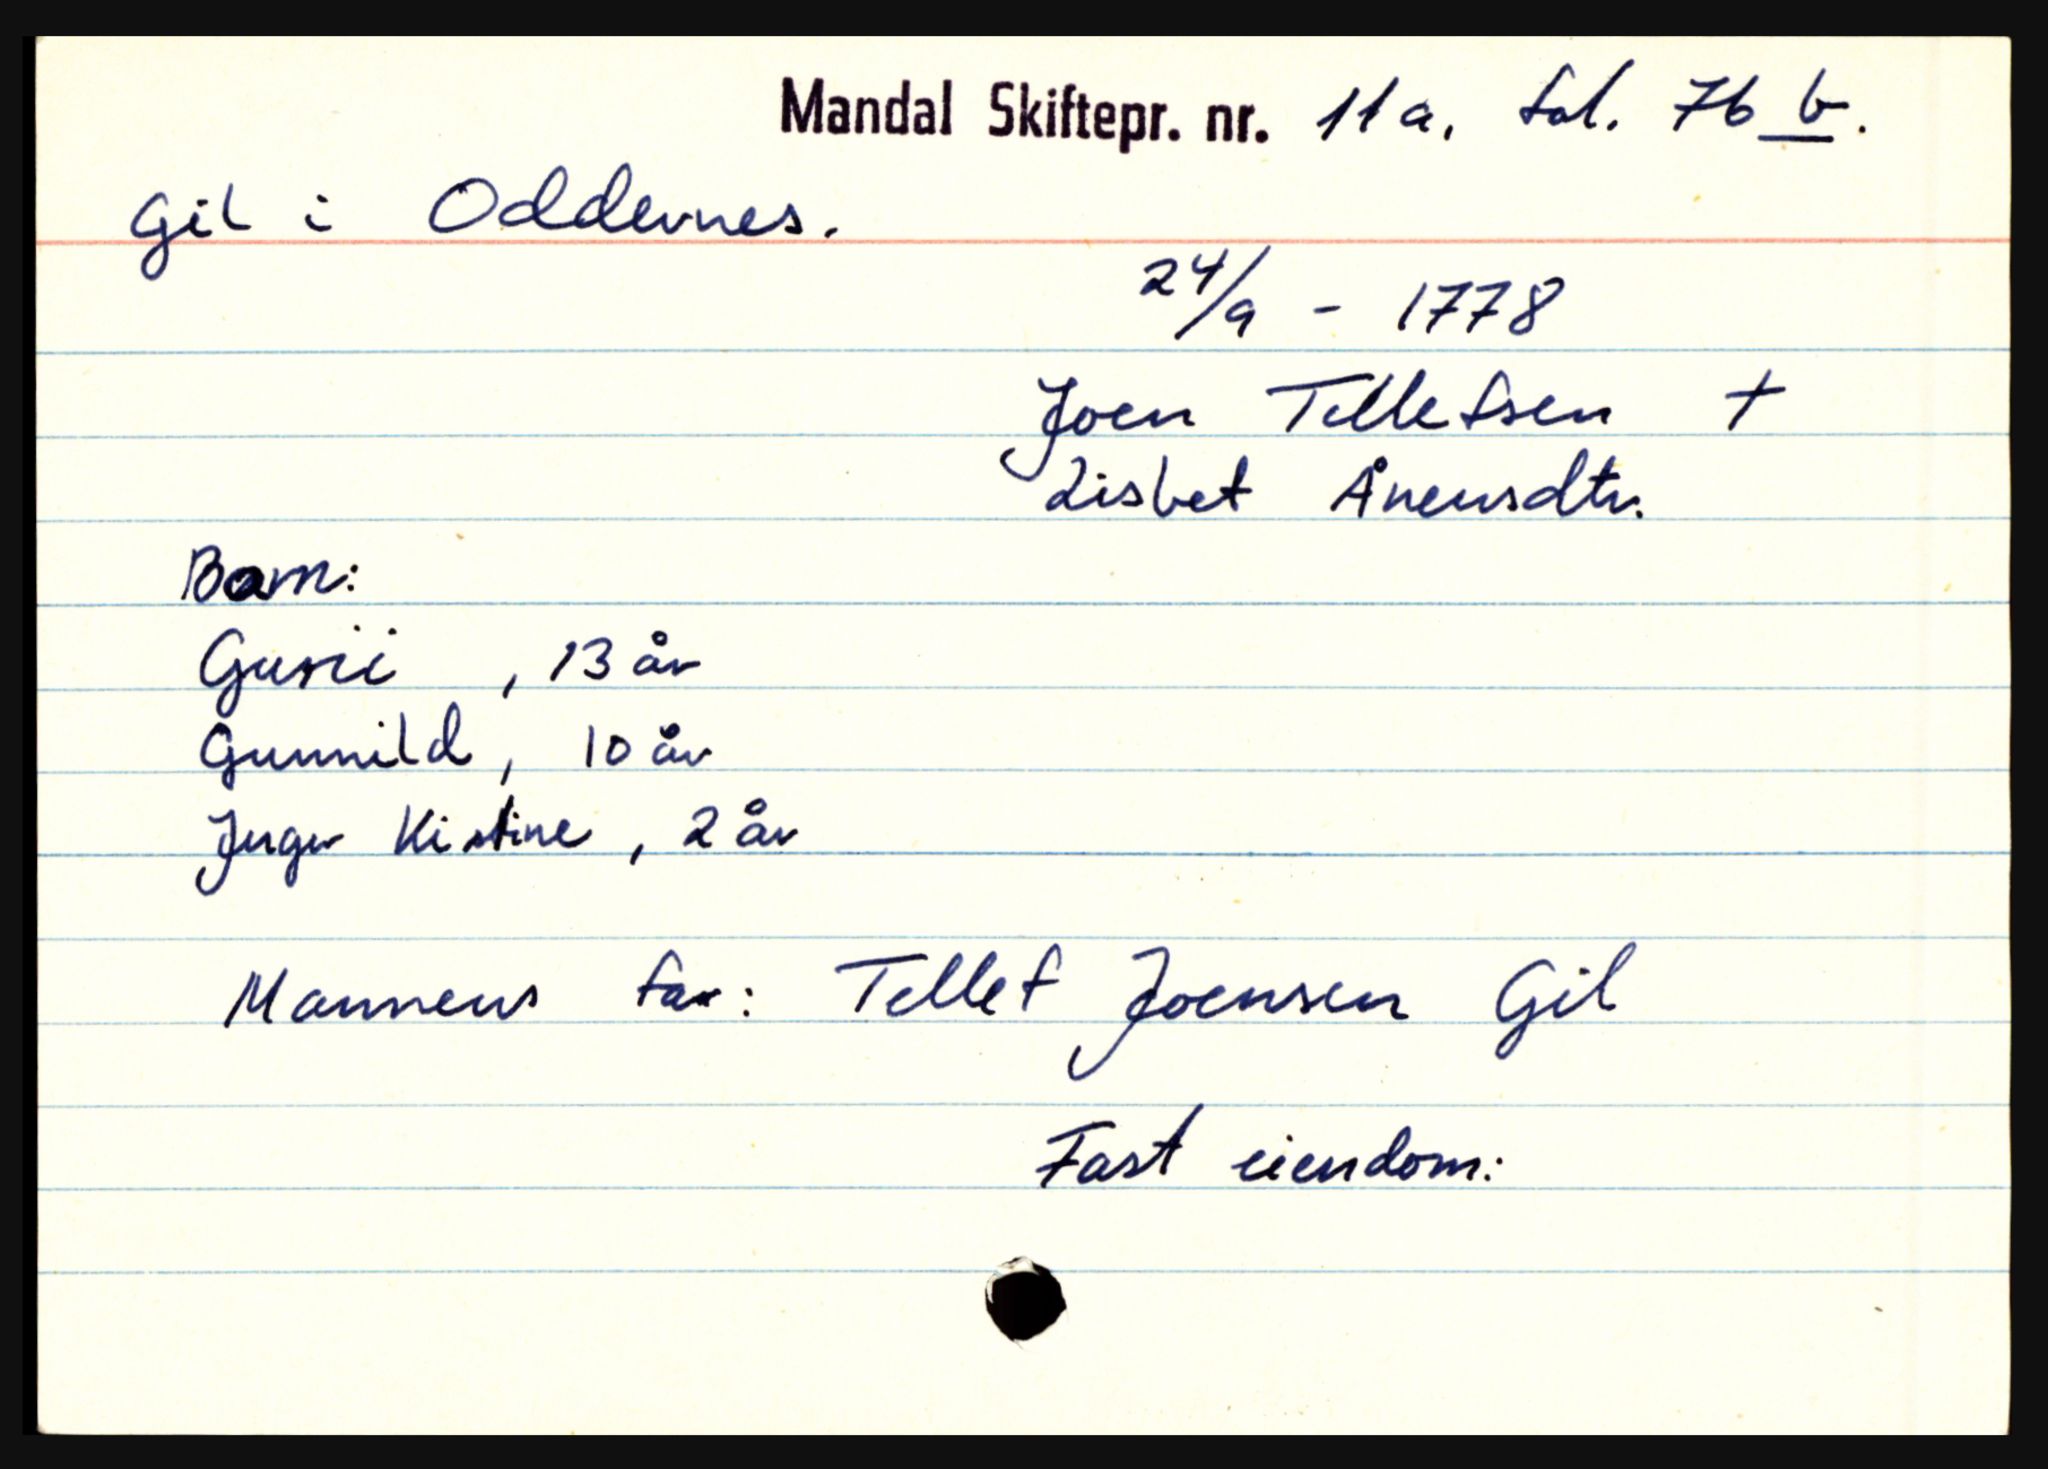 Mandal Skiftepr. nr. 11a. fol. 76 b.
Gil i Oddernes.
24/9 - 1778
Joen Tellefsen †
Lisbet Ånensdtr.
Barn:
Gurii, 13 år
Gunnild, 10 år
Inger Kistine, 2 år
Mannens far: Tellef Joensen Gil
Fast eiendom: